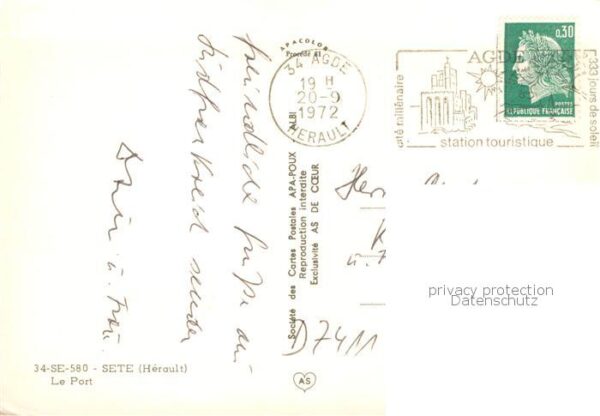 freundliche Grüße aus
Südfrankreich senden
u. Frau
34-SE-580 - SETE (Hérault)
Le Port
APACOLOR
Procédé 41
Société des Cartes Postales APA-POUX - ALBI
Reproduction interdite
Exclusivité AS DE CŒUR
AS
34 AGDE
19 H
20-9
1972
HERAULT
AGDE
cité millénaire
station touristique
333 jours de soleil
0,30
POSTES
RÉPUBLIQUE FRANÇAISE
Her
K
u.
D7411
privacy protection
Datenschutz